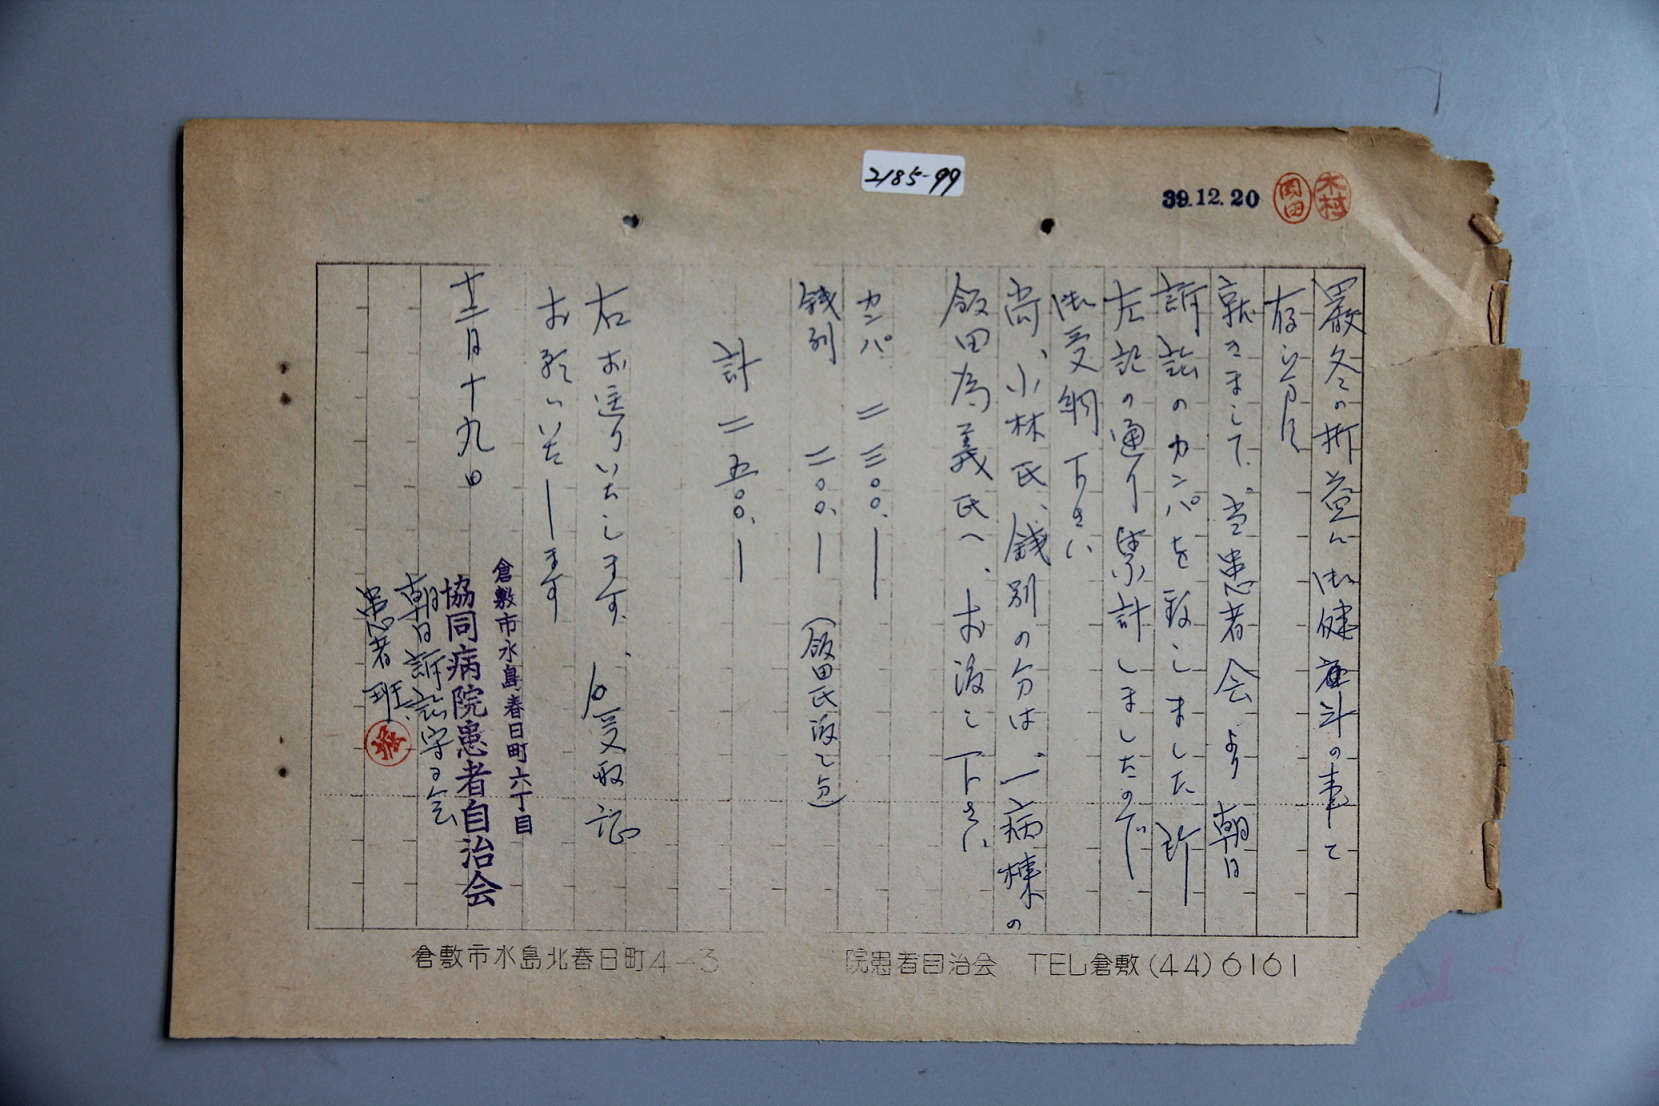 2185-99
39.12.20
岡田
木村
厳冬の折益々御健斗の事と
存じます
就きまして、当患者会より朝日
訴訟のカンパを致しました所
左記の通り累計しましたので
御受納下さい
尚、小林氏、餞別の分は、一病棟の
飯田為義氏へ、お渡し下さい
カンパ 二三〇〇.―
餞別 二〇〇.― (飯田氏渡し分)
計 二五〇〇.―
右お送りいたします、受取証
お願いいたします
十二月十九日
倉敷市水島春日町六丁目
協同病院患者自治会
朝日訴訟守る会
患者班
倉敷市水島北春日町4-3 院患者自治会 TEL倉敷(44)6161